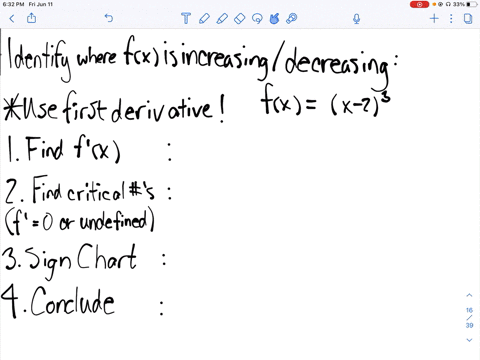 6:32 PM Fri Jun 11
33%
Identify where f(x) is increasing/decreasing:
*Use first derivative! f(x) = (x-2)³
1. Find f'(x) :
2. Find critical #'s :
(f' = 0 or undefined)
3. Sign Chart :
4. Conclude :
16
/
39